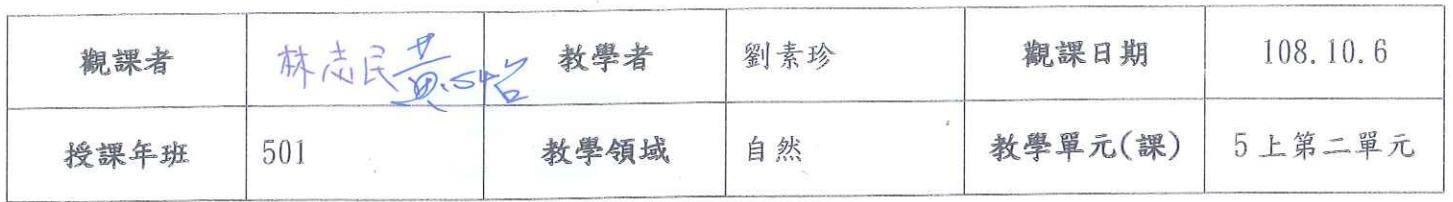 觀課者 林志民 黃 教學者 劉素珍 觀課日期 108.10.6
授課年班 501 教學領域 自然 教學單元(課) 5上第二單元